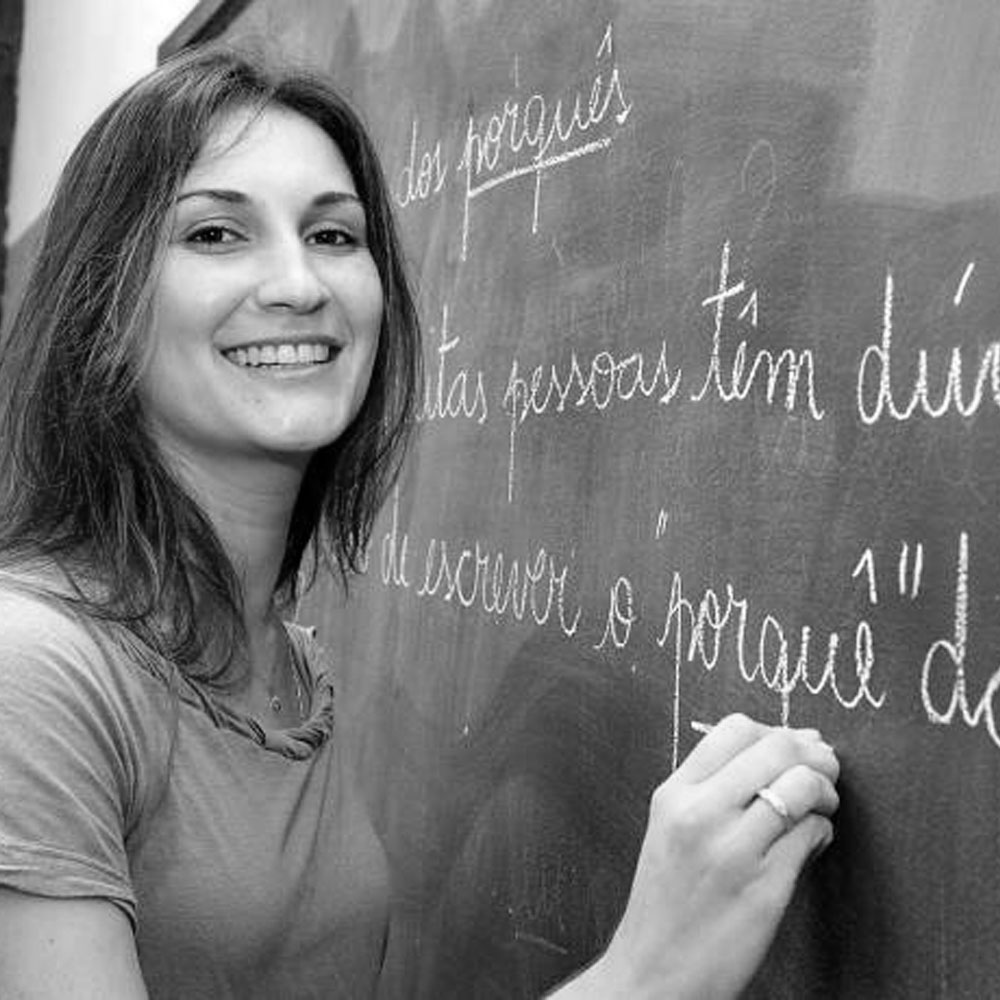 dos porquês
itas pessoas têm dúv
de escrever o "porquê" do